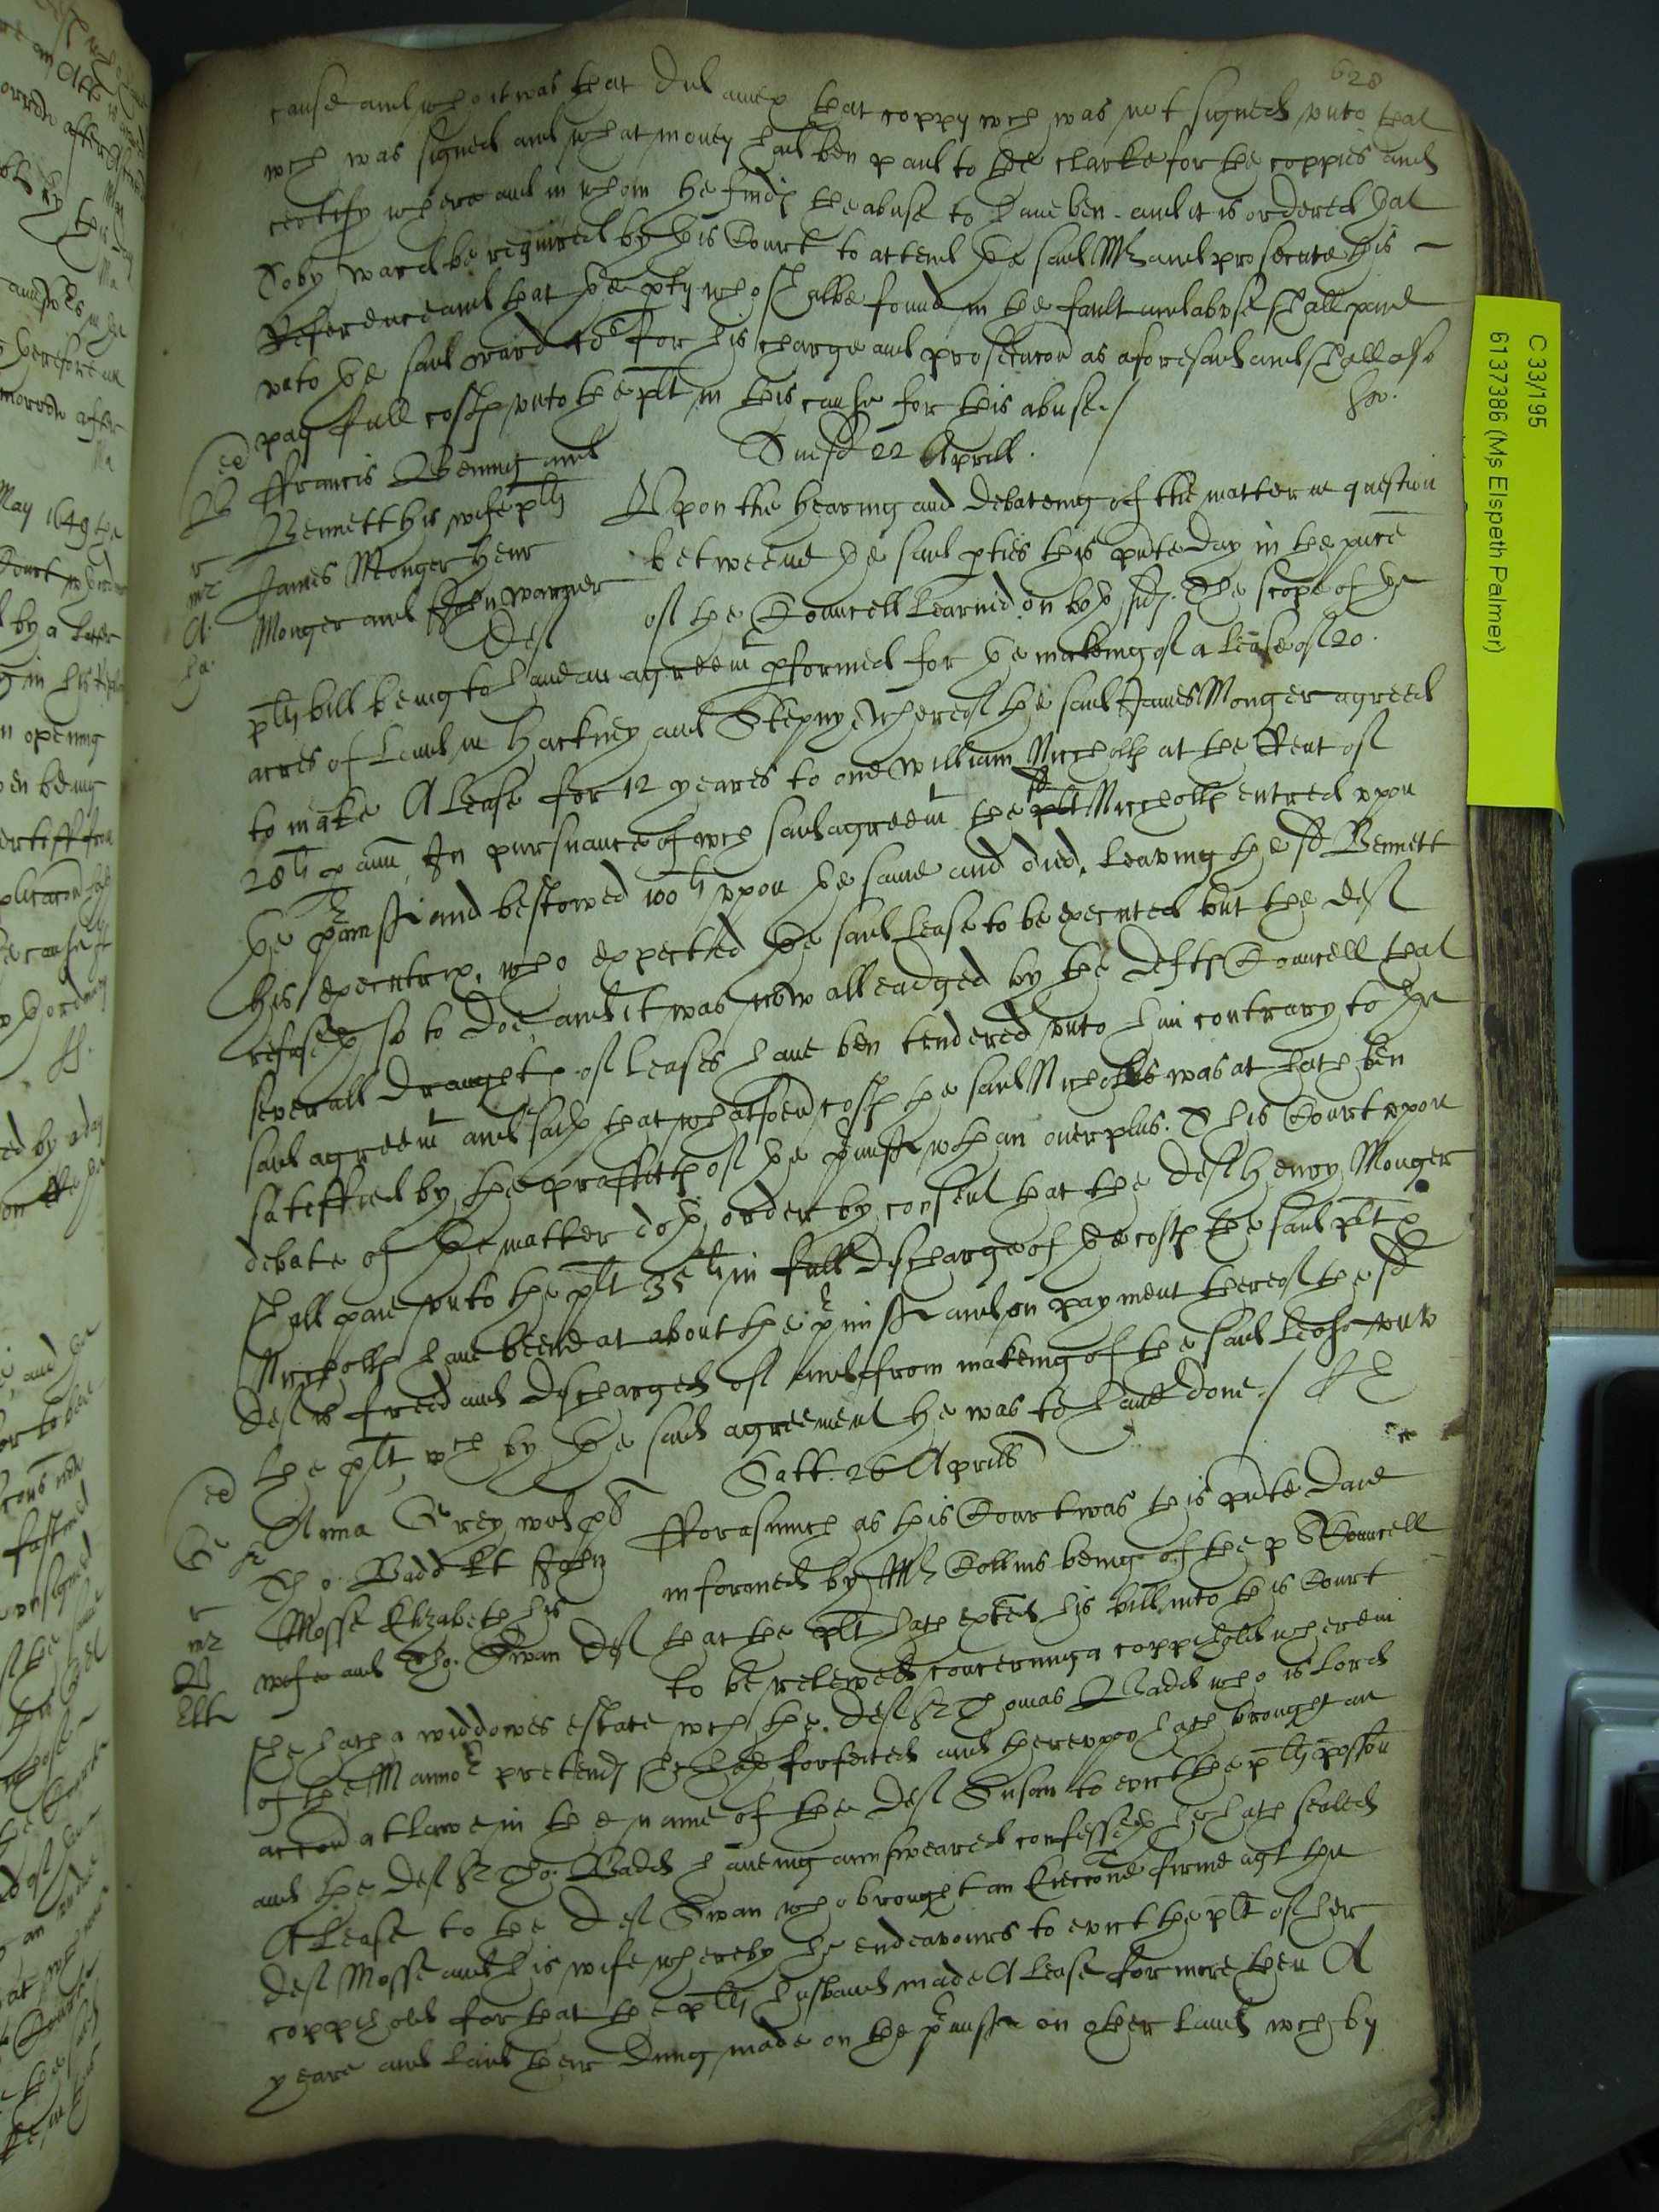 628
cause and who it was that did annex that coppy wch was not signed vnto that
wch was signed and what money hath ben paid to the clarke for the coppies and
certifye where and in whom he findes the abuse to haue ben. and it is ordered that
Toby Ward be required by this Court to attend the said Mr and prosecute this
Reference and that the pty who shalbe found in the fault and abuse shall paie
vnto the said Ward for his charge and prosecucon as aforesaid and shall also
pay full costs vnto the plt in this cause for this abuse./
Tuesd 22 Aprill.
ffrancis Bening and
Bennett his wife plts
James Monger Henr
Monger and John Warner
Deft
Vpon the hearing and debateing of the matter in question
betweene the said pties this pnte day in the pnce
of the Councell Learned on both sides. The scope of the
plts bill being to haue an agreemt pformed for the makeing of a lease of 20
acres of Land in Hackney and Stepny whereof the said James Monger agreed
to make A Lease for 12 yeares to one William Niccholls at the Rent of
28li p ann In pursuance of wch said agreemt the sd Niccholls entred vpon
the pmisses and bestowed 100li vpon the same and died. Leaving the sd Bennett
his executrix, who expected the said Lease to be executed but the deft
refuseth so to doe and it was now alleadged by the defts Councell that
severall draughts of leases haue ben tendered vnto him contrary to the
said agreemt and saith that whatsoeu costs the said Nicholls was at hath ben
satisfied by the proffitts of the pmisses wth an ouerplus. This Court vpon
debate of the matter doth order by consent that the deft Henry Monger
shall paie vnto the plt 35li in full discharge of the costs the said plts
Niccholls haue beene at about the pmisses and on payment thereof the sd
deft is freed and discharged of and from makeing of the said Lease vnto
the plt wch by the said agreement he was to haue done./
Satt. 26 Aprilis
Anna Grey wid plt
Tho: Badd kt John
Mosse Elizabeth his
wife and Tho: Swan deft
fforasmuch as this Court was this pnte daie
informed by Mr Collins being of the p Councell
that the plt hath exhted his bill into this Court
to be releived concerning a coppihold wherein
she hath a widdowes estate wch the deft Sr Thomas Badd who is lord
of the Mannor pretends she hath forfeited and therevpon hath brought an
accon at lawe in the name of the deft Susan to evict the plts possion
and the deft Sr Tho: Badd haueing answeared confesseth he hath sealed
A Lease to the deft Swan who brought an Eieccone firme agt the
deft Mosse and his wife whereby he endeavours to evict the plt of her
coppihold for that the plts husband made A Lease for more then A
yeare and laid their dung made on the pmisses on other land wch by
C 33/195
6137386 (Ms Elspeth Palmer)